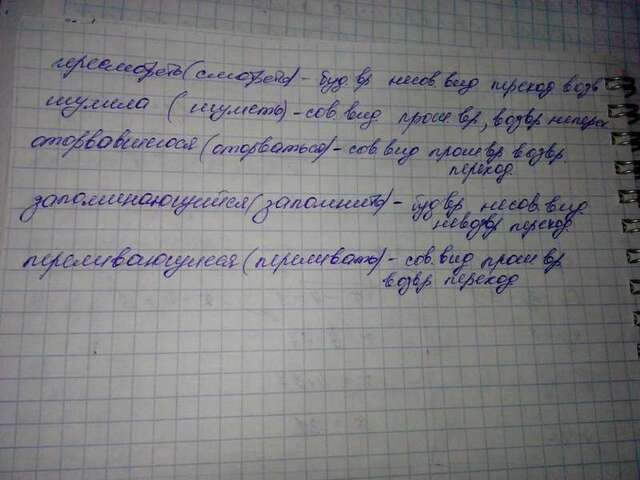 пересмотреть (смотреть) - буд. вр несов. вид переход возв
шумила (шуметь) - сов. вид прош вр, возвр неперех
оторвавшегося (оторваться) - сов. вид прош вр возвр
переход.
запоминающийся (запомнить) - буд вр несов. вид
невозвр переход.
переливающуюся (переливать) - сов. вид прош вр
возвр переход